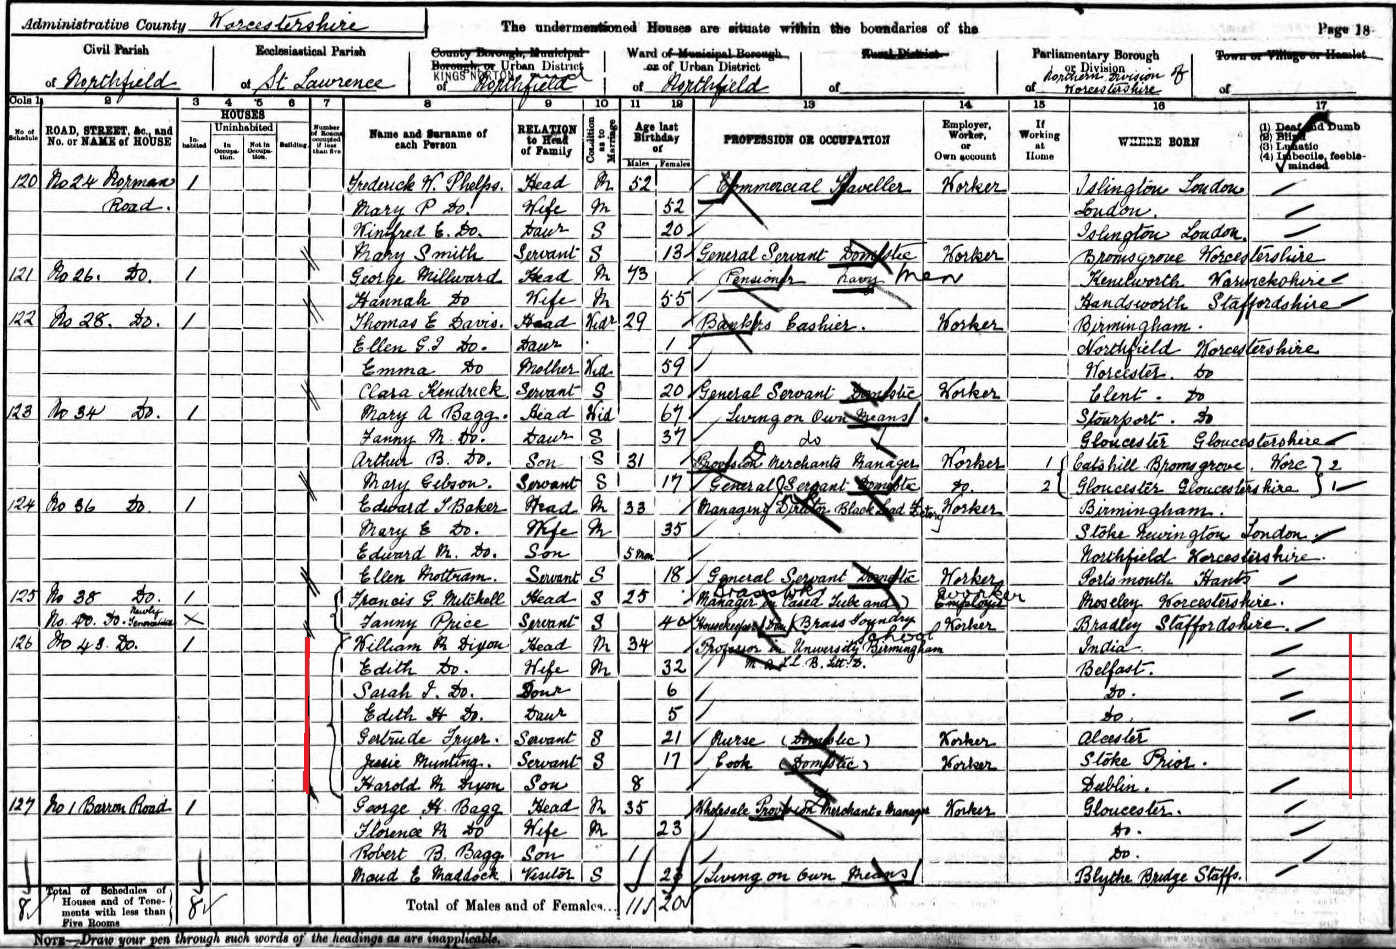 Administrative County Worcestershire The undermentioned Houses are situate within the boundaries of the Page 18
Civil Parish Ecclesiastical Parish County Borough, Municipal Borough, or Urban District Ward of Municipal Borough or of Urban District Rural District Parliamentary Borough or Division Town or Village or Hamlet
of Northfield of St Lawrence KINGS NORTON of Northfield of Northfield of of Northern Division of Worcestershire of
Cols 1 2 3 4 5 6 7 8 9 10 11 12 13 14 15 16 17
No. of Schedule ROAD, STREET, &c., and No. or NAME of HOUSE HOUSES Inhabited Uninhabited In Occupation. Not in Occupation. Building. Number of Rooms occupied if less than five Name and Surname of each Person RELATION to Head of Family Condition as to Marriage Age last Birthday of Males Females PROFESSION OR OCCUPATION Employer, Worker, or Own account If Working at Home WHERE BORN (1) Deaf and Dumb (2) Blind (3) Lunatic (4) Imbecile, feeble-minded
120 No 24 Norman 1 Frederick W. Phelps. Head M 52 Commercial Traveller Worker Islington London
Road. Mary P Do. Wife M 52 London.
Winifred E. Do. Daur S 20 Islington London.
Mary Smith Servant S 13 General Servant Domestic Worker Bromsgrove Worcestershire
121 No 26. Do. 1 George Millward Head M 73 Pensioner Navy Men Kenilworth Warwickshire
Hannah Do Wife M 55 Handsworth Staffordshire
122 No 28. Do. 1 Thomas E Davis. Head Widr 29 Bankers Cashier. Worker Birmingham.
Ellen G.J Do. Daur 1 Northfield Worcestershire
Emma Do Mother Wid 59 Worcester. Do
Clara Kendrick Servant S 20 General Servant Domestic Worker Clent. Do
123 No 34 Do. 1 Mary A Bagg. Head Wid 67 Living on Own Means. Stourport. Do
Fanny M. Do. Daur S 37 do Gloucester Gloucestershire
Arthur B. Do. Son S 31 Provision Merchants Manager Worker 1 Catshill Bromsgrove. Worc 2
Mary Gibson. Servant S 17 General Servant Domestic Do. 2 Gloucester Gloucestershire 1
124 No 36 Do. 1 Edward T Baker Head M 33 Managing Director Black Lead Factory Worker Birmingham.
Mary E Do. Wife M 35 Stoke Newington London.
Edward M. Do. Son 5 Mon Northfield Worcestershire.
Ellen Mottram. Servant S 18 General Servant Domestic Worker Portsmouth Hants
125 No 38 Do. 1 Francis G. Mitchell Head S 25 Manager in Cased Tube and Employer Worker Moseley Worcestershire.
No. 40. Do. Newly X Fanny Price Servant S 40 Housekeeper (Dom) Brass Foundry Worker Bradley Staffordshire.
126 No 43. Do. 1 William M Dixon Head M 34 Professor in University Birmingham School India
Edith Do. Wife M 32 M.A. LL.B. Litt.D. Belfast.
Sarah J. Do. Daur 6 Do.
Edith H Do. Daur 5 Do.
Gertrude Fryer. Servant S 21 Nurse (Domestic) Worker Alcester
Jessie Munting. Servant S 17 Cook (Domestic) Worker Stoke Prior.
Harold M Dixon Son 8 Dublin.
127 No 1 Barron Road 1 George H. Bagg Head M 35 Wholesale Provision Merchants Manager Worker Gloucester.
Florence M Do Wife M 23 Do.
Robert B. Bagg Son 1 Do.
Maud E Maddock Visitor S 26 Living on Own Means Blythe Bridge Staffs.
8 Total of Schedules of Houses and of Tenements with less than Five Rooms 8 Total of Males and of Females... 11 20
NOTE—Draw your pen through such words of the headings as are inapplicable.